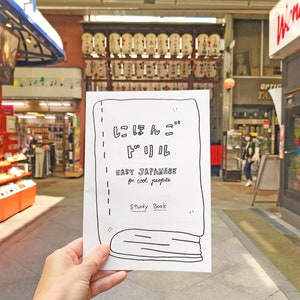 にほんご
ドリル
EASY JAPANESE
for cool people
Study Book